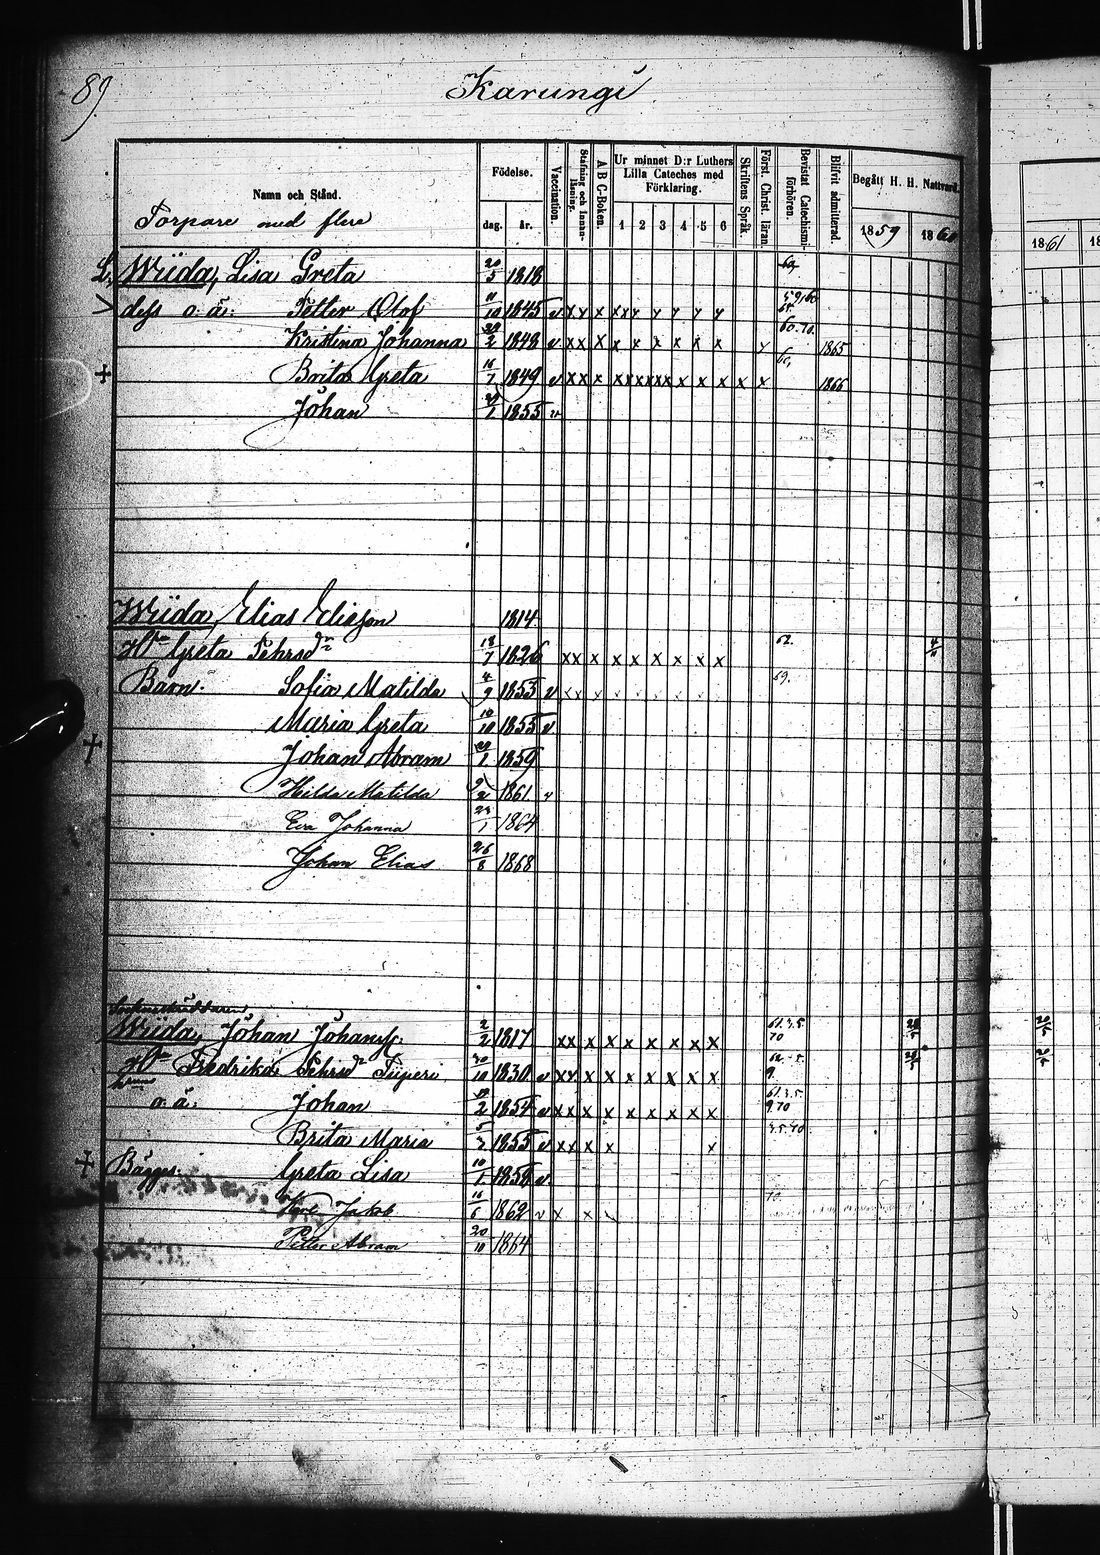 89.
Karungi
Namn och Stånd.
Torpare med flere
Födelse.
dag. år.
Vaccination.
Stafning och Innan-läsning.
A B C-Boken.
Ur minnet D:r Luthers Lilla Cateches med Förklaring.
1 2 3 4 5 6
Skriftens Språk.
Först. Christ. läran.
Bevistat Catechismi-förhören.
Blifvit admitterad.
Begått H. H. Nattvard.
1859 1860
1861
Wiida, Lisa Greta 20/5 1818 60,
dess o. ä: Petter Olof 11/10 1845 v x x x x x y y y y y 59, 60
Kristina Johanna 29/2 1848 v x x x x x x x x x x 60. 70. 1865
+ Brita Greta 16/7 1849 v x x x x x x x x x x x x x x x 60, 1866
Johan 29/1 1855 v
Wiida, Elias Eliasson 1814
H:u Greta Pehrsd:r 18/7 1826 x x x x x x x x x 62. 4/11
Barn: Sofia Matilda 4/9 1853 v x x x 69.
Maria Greta 10/10 1855 v
+ Johan Abram 1859
Hilda Matilda 1861 v
Eva Johanna 23/1 1864
Johan Elias 26/8 1868
Wiida, Johan Johanss. 2/2 1817 x x x x x x x x x 61. 3. 5. 70
H:u Fredrika Pehrsd:r 30/10 1830 v x x x x x x x x x
o. ä: Johan 1854 v x x x x x x x x x 61. 3. 5. 9. 70
Brita Maria 1855 v x x x x x 3. 5. 70
+ Greta Lisa 10/1 1858 v
Jakob 16/6 1862 v x x 70
Petter Abram 20/10 1864